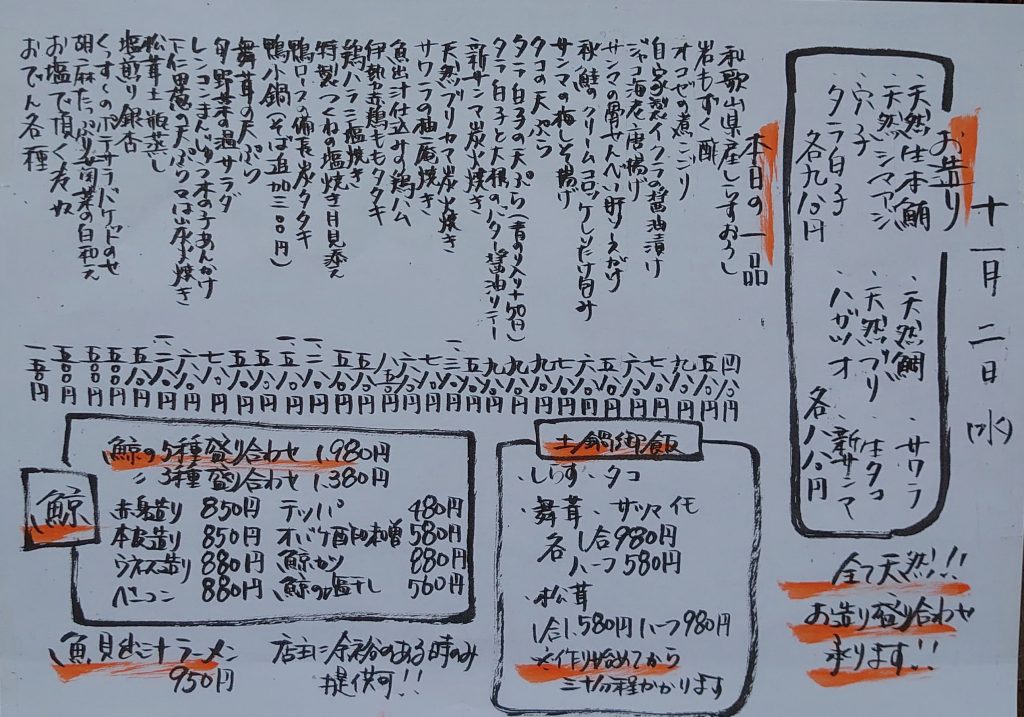 十一月二日(水)
お造り
・天然生本鮪
・天然シマアジ
・穴子
・タラ白子
各九八〇円
・天然鯛
・天然ブリ
・ハガツオ
・サワラ
・生タコ
・新サンマ
各八八〇円
全て天然!!
お造り盛り合わせ
承ります!!
本日の一品
和歌山県産しらすおろし 四八〇円
岩もずく酢 五八〇円
オコゼの煮こごり 九八〇円
自家製イクラの醤油漬け
ジャコ海老唐揚げ
サンマの骨せんべい肝ソースがけ
秋鮭のクリームコロッケしいたけ包み
サンマの梅しそ揚げ
タコの天ぷら
タラ白子の天ぷら(雲丹入り+150円)
タラ白子と大根のバター醤油ソテー
新サンマ炭火焼き
天然ブリカマ炭火焼き
サワラの柚庵焼き
魚出汁仕込みの鶏ハム
伊勢赤鶏ももタタキ
鶏ハラミ塩焼き
特製つくねの塩焼き月見添え
鴨ロース備長炭タタキ
鴨小鍋(そば追加三〇〇円)
舞茸の天ぷら
旬野菜の温サラダ
レンコンまんじゅう木の子あんかけ
下仁田葱の天ぷら又は炭火焼き
松茸土瓶蒸し
塩煎り銀杏
くんすくのポテサラバケットのせ
胡麻たっぷり春菊菜の白和え
お塩で頂く冷奴 五〇〇円
おでん各種 一五〇円
土鍋御飯
・しらす・タコ
・舞茸・サツマイモ
各1合980円
ハーフ580円
・松茸
1合1,580円ハーフ980円
※作り始めてから
三十分程かかります
鯨
鯨の5種盛り合わせ 1,980円
〃 3種盛り合わせ 1,380円
赤身造り 850円
本皮造り 850円
ウネス造り 880円
ベーコン 880円
テッパ 480円
オバケ酢味噌 580円
鯨カツ 880円
鯨の塩干し 560円
魚貝出汁ラーメン
950円
店主に余裕のある時のみ
提供可!!